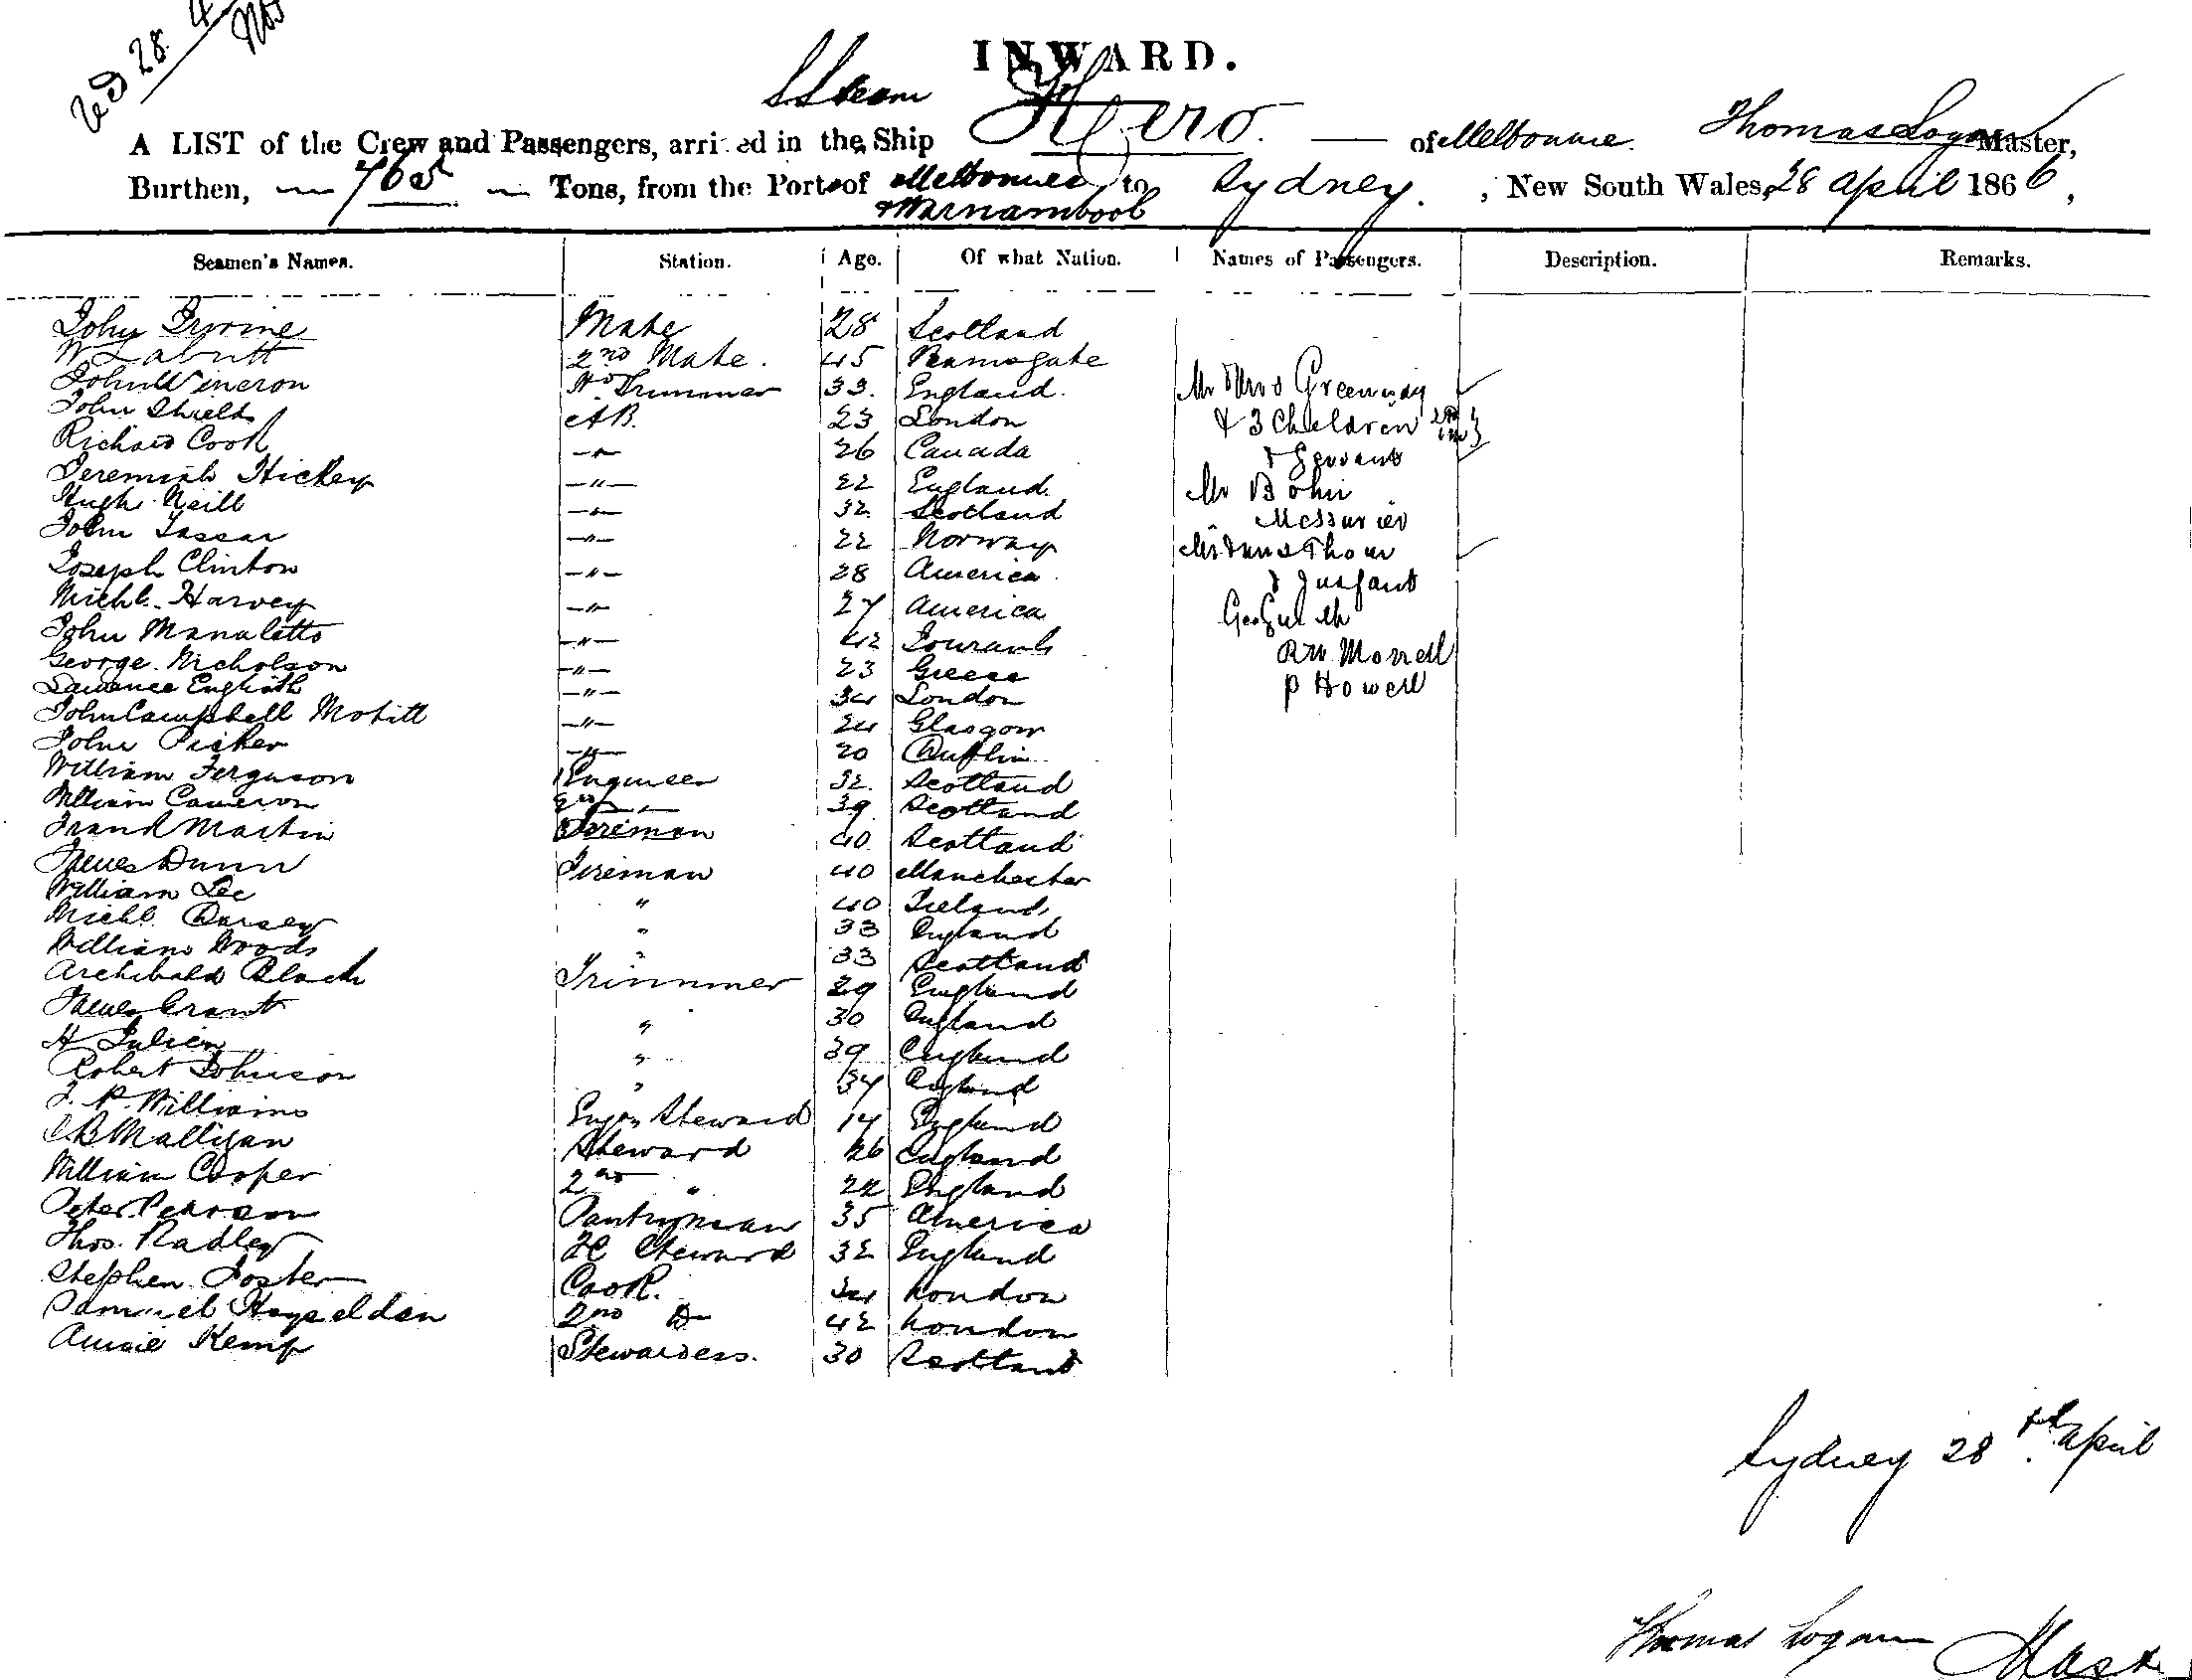 28
INWARD.
Steam Hero.
A LIST of the Crew and Passengers, arri ed in the Ship of Melbourne. Thomas Logan Master,
Burthen, 765 Tons, from the Ports of Melbourne to Sydney. , New South Wales, 28 April 1866,
& Warnambool
Seamen's Names. Station. Age. Of what Nation. Names of Passengers. Description. Remarks.
John Irvine Mate 28 Scotland
W 2nd Mate. 45 Ramsgate
John Vineron Trimmer 33. England. Mr & Mrs Greenway
John Shields AB. 23 London & 3 Children
Richard Cook -"- 26 Canada & Servant
Jeremiah Hickey -"- 22 England. Mr Bohn
Hugh Neill -"- 32 Scotland
John Tassar -"- 22 Norway Mr & Mrs Thom
Joseph Clinton -"- 28 America & Infant
Michl. Harvey -"- 27 America Geo Smith
John Manaletto -"- 42 RW Morrell
George Nicholson -"- 23 Greece P Howell
Lawrence English -"- 34 London
John Campbell -"- 24 Glasgow
John Picker -"- 20 Dublin
William Ferguson Engineer 32. Scotland
William Cameron 2nd -"- 39 Scotland
Frank Martin Fireman 40 Scotland
James Dunn Fireman 40 Manchester
William Lee " 40 Ireland
Michl. Darsey " 33 England
William Woods " 33 Scotland
Archibald Black Trimmer 29 England
James Grant 30 England
H Julien " 39 England
Robert Johnson " 34 England
J. P. Williams Engrs Steward 17 England
Malligan Steward 26 England
William Cooper 2nd " 22 England
Peter Pearson Pantryman 35 America
Thos. Radley FC Steward 32 England
Stephen Foster Cook. 34 London
Samuel Hazeldon 2nd Do 42 London
Annie Kemp Stewardess. 30 Scotland
Sydney 28th April
Thomas Logan Master